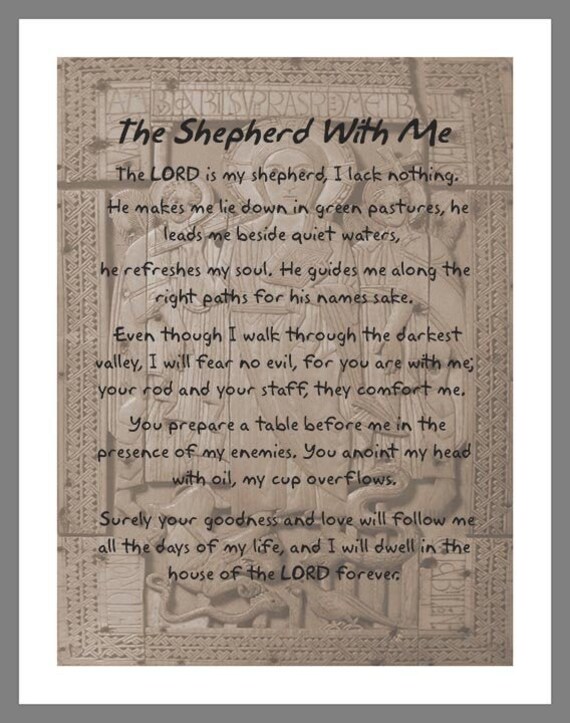 The Shepherd With Me
The LORD is my shepherd, I lack nothing.
He makes me lie down in green pastures, he
leads me beside quiet waters,
he refreshes my soul. He guides me along the
right paths for his names sake.
Even though I walk through the darkest
valley, I will fear no evil, for you are with me;
your rod and your staff, they comfort me.
You prepare a table before me in the
presence of my enemies. You anoint my head
with oil, my cup overflows.
Surely your goodness and love will follow me
all the days of my life, and I will dwell in the
house of the LORD forever.